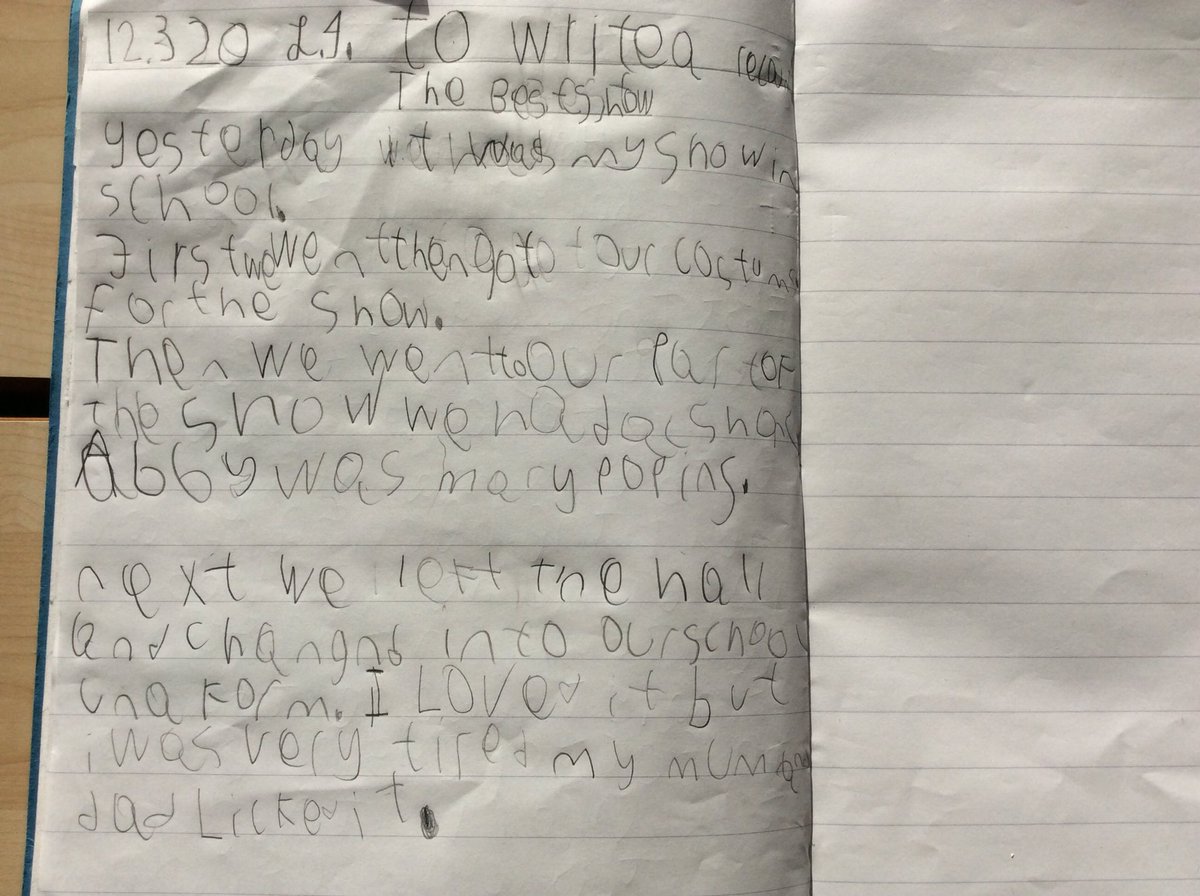 12.3 20 L.I. to writea
The Best show
yesterday it was my show in
school.
First we went then got to our costums
for the show.
Then we went to Our Part of
the show we had
Abby was mary popins.
next we left the hall
and changnd into our school
unaform. I LOVed it but
i was very tired my mum and
dad Licked it.